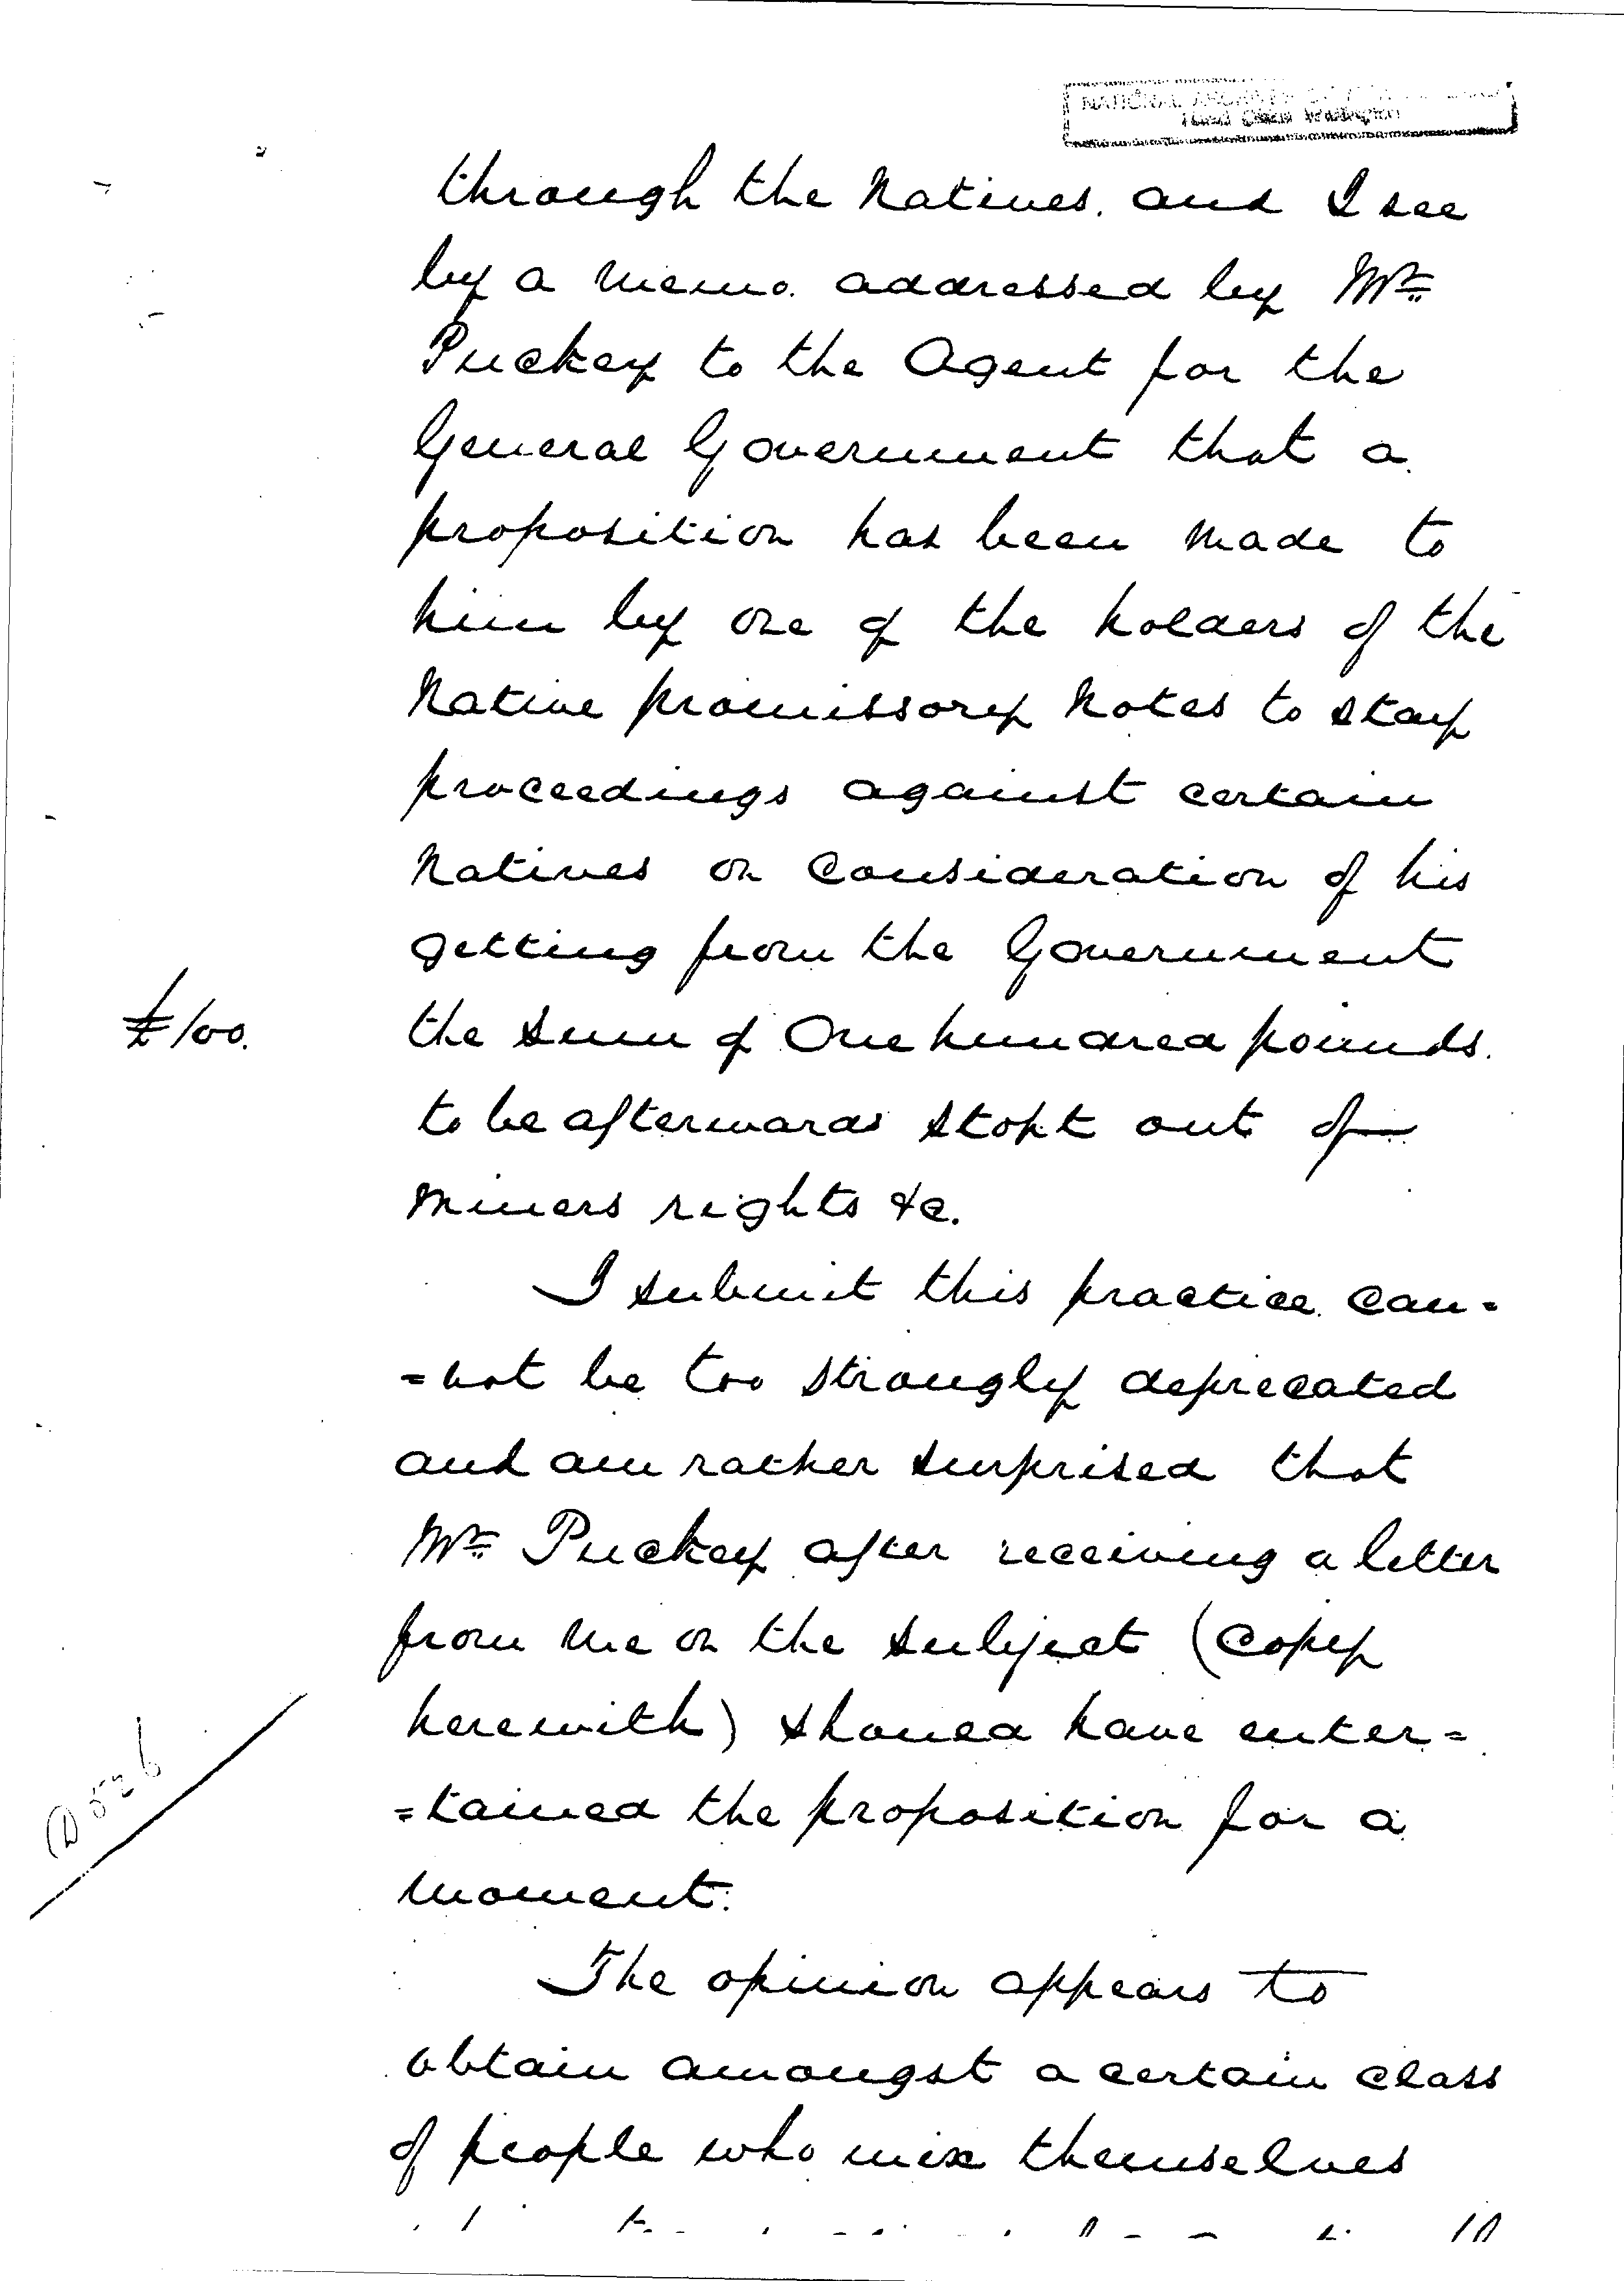 NATIONAL ARCHIVES
Head Office Wellington
through the Natives. and I see
by a memo. addressed by Mr
Puckey to the Agent for the
General Government that a
proposition has been made to
him by one of the holders of the
Native promissory Notes to stay
proceedings against certain
Natives on Consideration of his
getting from the Government
£100.
the sum of One hundred pounds.
to be afterwards stopt out of
Miners rights &c.
I submit this practice can=
=not be too strongly deprecated
and am rather surprised that
Mr Puckey after receiving a letter
from me on the subject (Copy
herewith) should have enter=
=tained the proposition for a
moment.
D526
The opinion appears to
obtain amongst a certain class
of people who mix themselves